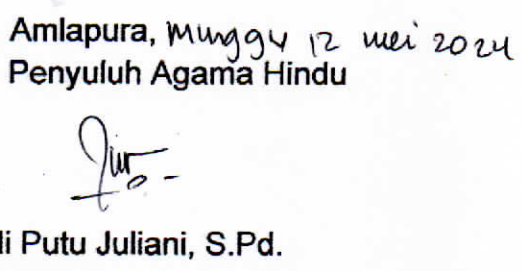 Amlapura, Minggu 12 mei 2024
Penyuluh Agama Hindu
li Putu Juliani, S.Pd.